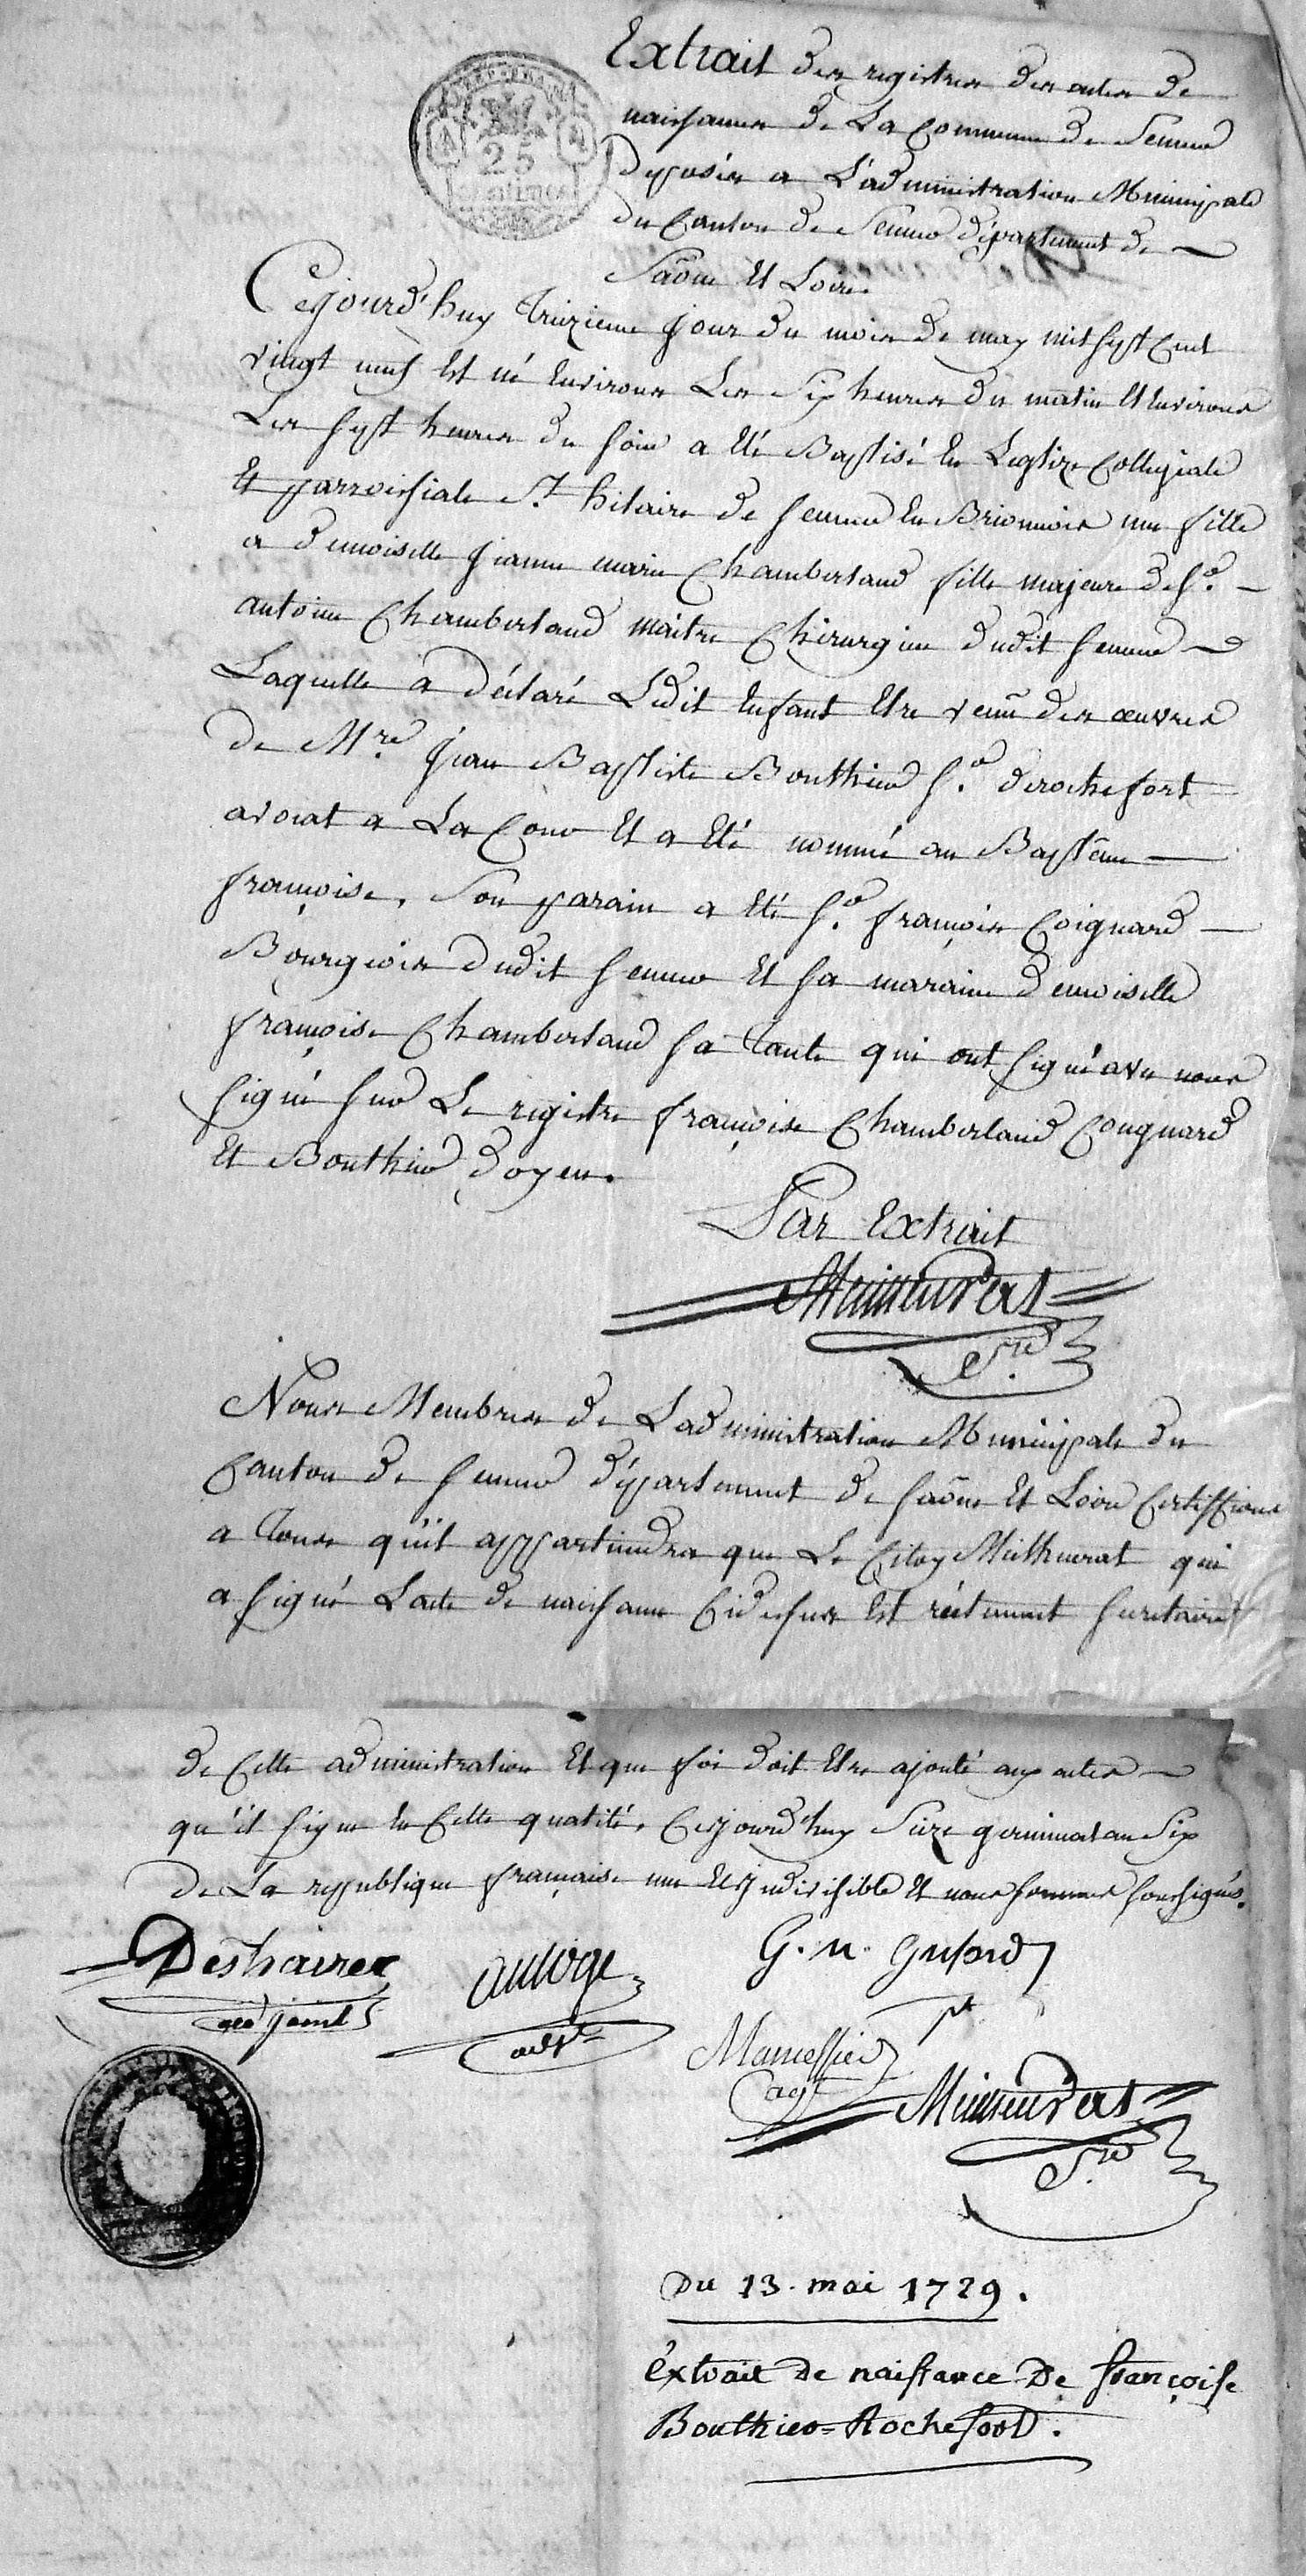 Extrait des registres des actes de
naissances de La Commune de Semur
déposés a L'administration Municipale
du Canton de Semur département de
Saône Et Loire.
25
centimes
Cejourd'huy treizieme jour du mois de may mil sept Cent
vingt neuf Est né Environs Les Six heures du matin Et Environs
Les sept heures du soir a Eté Baptisé En Leglize Collegiale
Et parroissiale St. hilaire de semur En Brionnois une fille
a demoiselle jeanne marie Chamberland fille majeure de sr.
antoine Chamberland maitre Chirurgien dudit semur
Laquelle a déclaré Ledit Enfant Etre venu des œuvres
de Mre. jean Baptiste Bouthier sr. derochefort
avocat a La Cour Et a Eté nommé au Baptême
françoise, Son parain a Eté sr. françois Coignard
Bourgeois dudit semur Et sa maraine demoiselle
françoise Chamberland sa tante qui ont signé avec nous
signé sur Le registre françoise Chamberland Cougnard
Et Bouthier doyen.
Par Extrait
Sre.
Nous Membres de L'administration Municipale du
Canton de semur département de saône Et Loire Certiffions
a tous qu'il appartiendra que Le Citoy Muthuerat qui
a signé L'acte de naissance Cidessus Est réelement secretaire
de Cette administration Et que foi doit Etre ajouté aux actes
qu'il signe En Cette qualité, Cejourd'huy Seize germinal an Six
De La republique française une Et indivisible Et nous sommes soussignés.
Deshaires
adjoint
G. n.
pt
agt
Sre.
Du 13. mai 1729.
éxtrait de naissance De françoise
Bouthier-Rochefort.